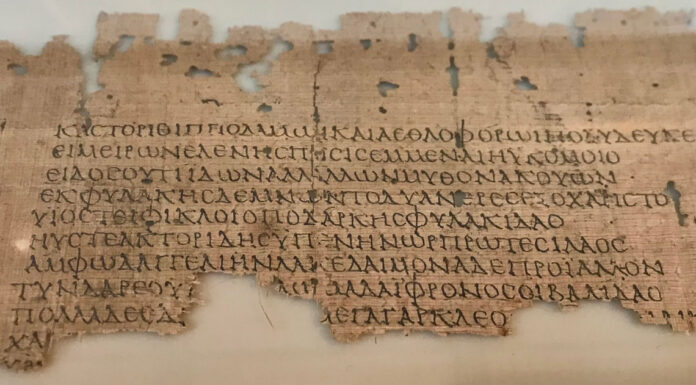 ΚΑϹΤΟΡΙΘΙΠΠΟΔΑΜΩΙΚΑΙΑΕΘΛΟΦΟΡΩΙΠΟΛΥΔΕΥΚΕ
ΕΙΜΕΙΡΩΝΕΛΕΝΗϹΠΟϹΙϹΕΜΜΕΝΑΙΗΥΚΟΜΟΙΟ
ΕΙΔΟϹΟΥΤΙΙΔΩΝΑΛΛΑΛΛΩΝΜΥΘΟΝΑΚΟΥΩΝ
ΕΚΦΥΛΑΚΗϹΔΕΜΝΩΝΤΟΔΥΑΝΕΡΕϹΕΞΟΧΑΡΙϹΤΟ
ΥΙΟϹΤΕΙΦΙΚΛΟΙΟΠΟΔΑΡΚΗϹΦΥΛΑΚΙΔΑΟ
ΗΥϹΤΕΑΚΤΟΡΙΔΗϹΥΠΕΡΗΝΩΡΠΡΩΤΕϹΙΛΑΟϹ
ΑΜΦΩΔΑΓΓΕΛΙΗΝΛΑΚΕΔΑΙΜΟΝΑΔΕΠΡΟΙΑΛΛΟΝ
ΤΥΝΔΑΡΕΟΥ ΔΩΜΑΔΑΙΦΡΟΝΟϹΟΙΒΑΛΙΔΑΟ
ΠΟΛΛΑΔΕ ΜΕΓΑΓΑΡΚΛΕΟ
ΧΑΛ